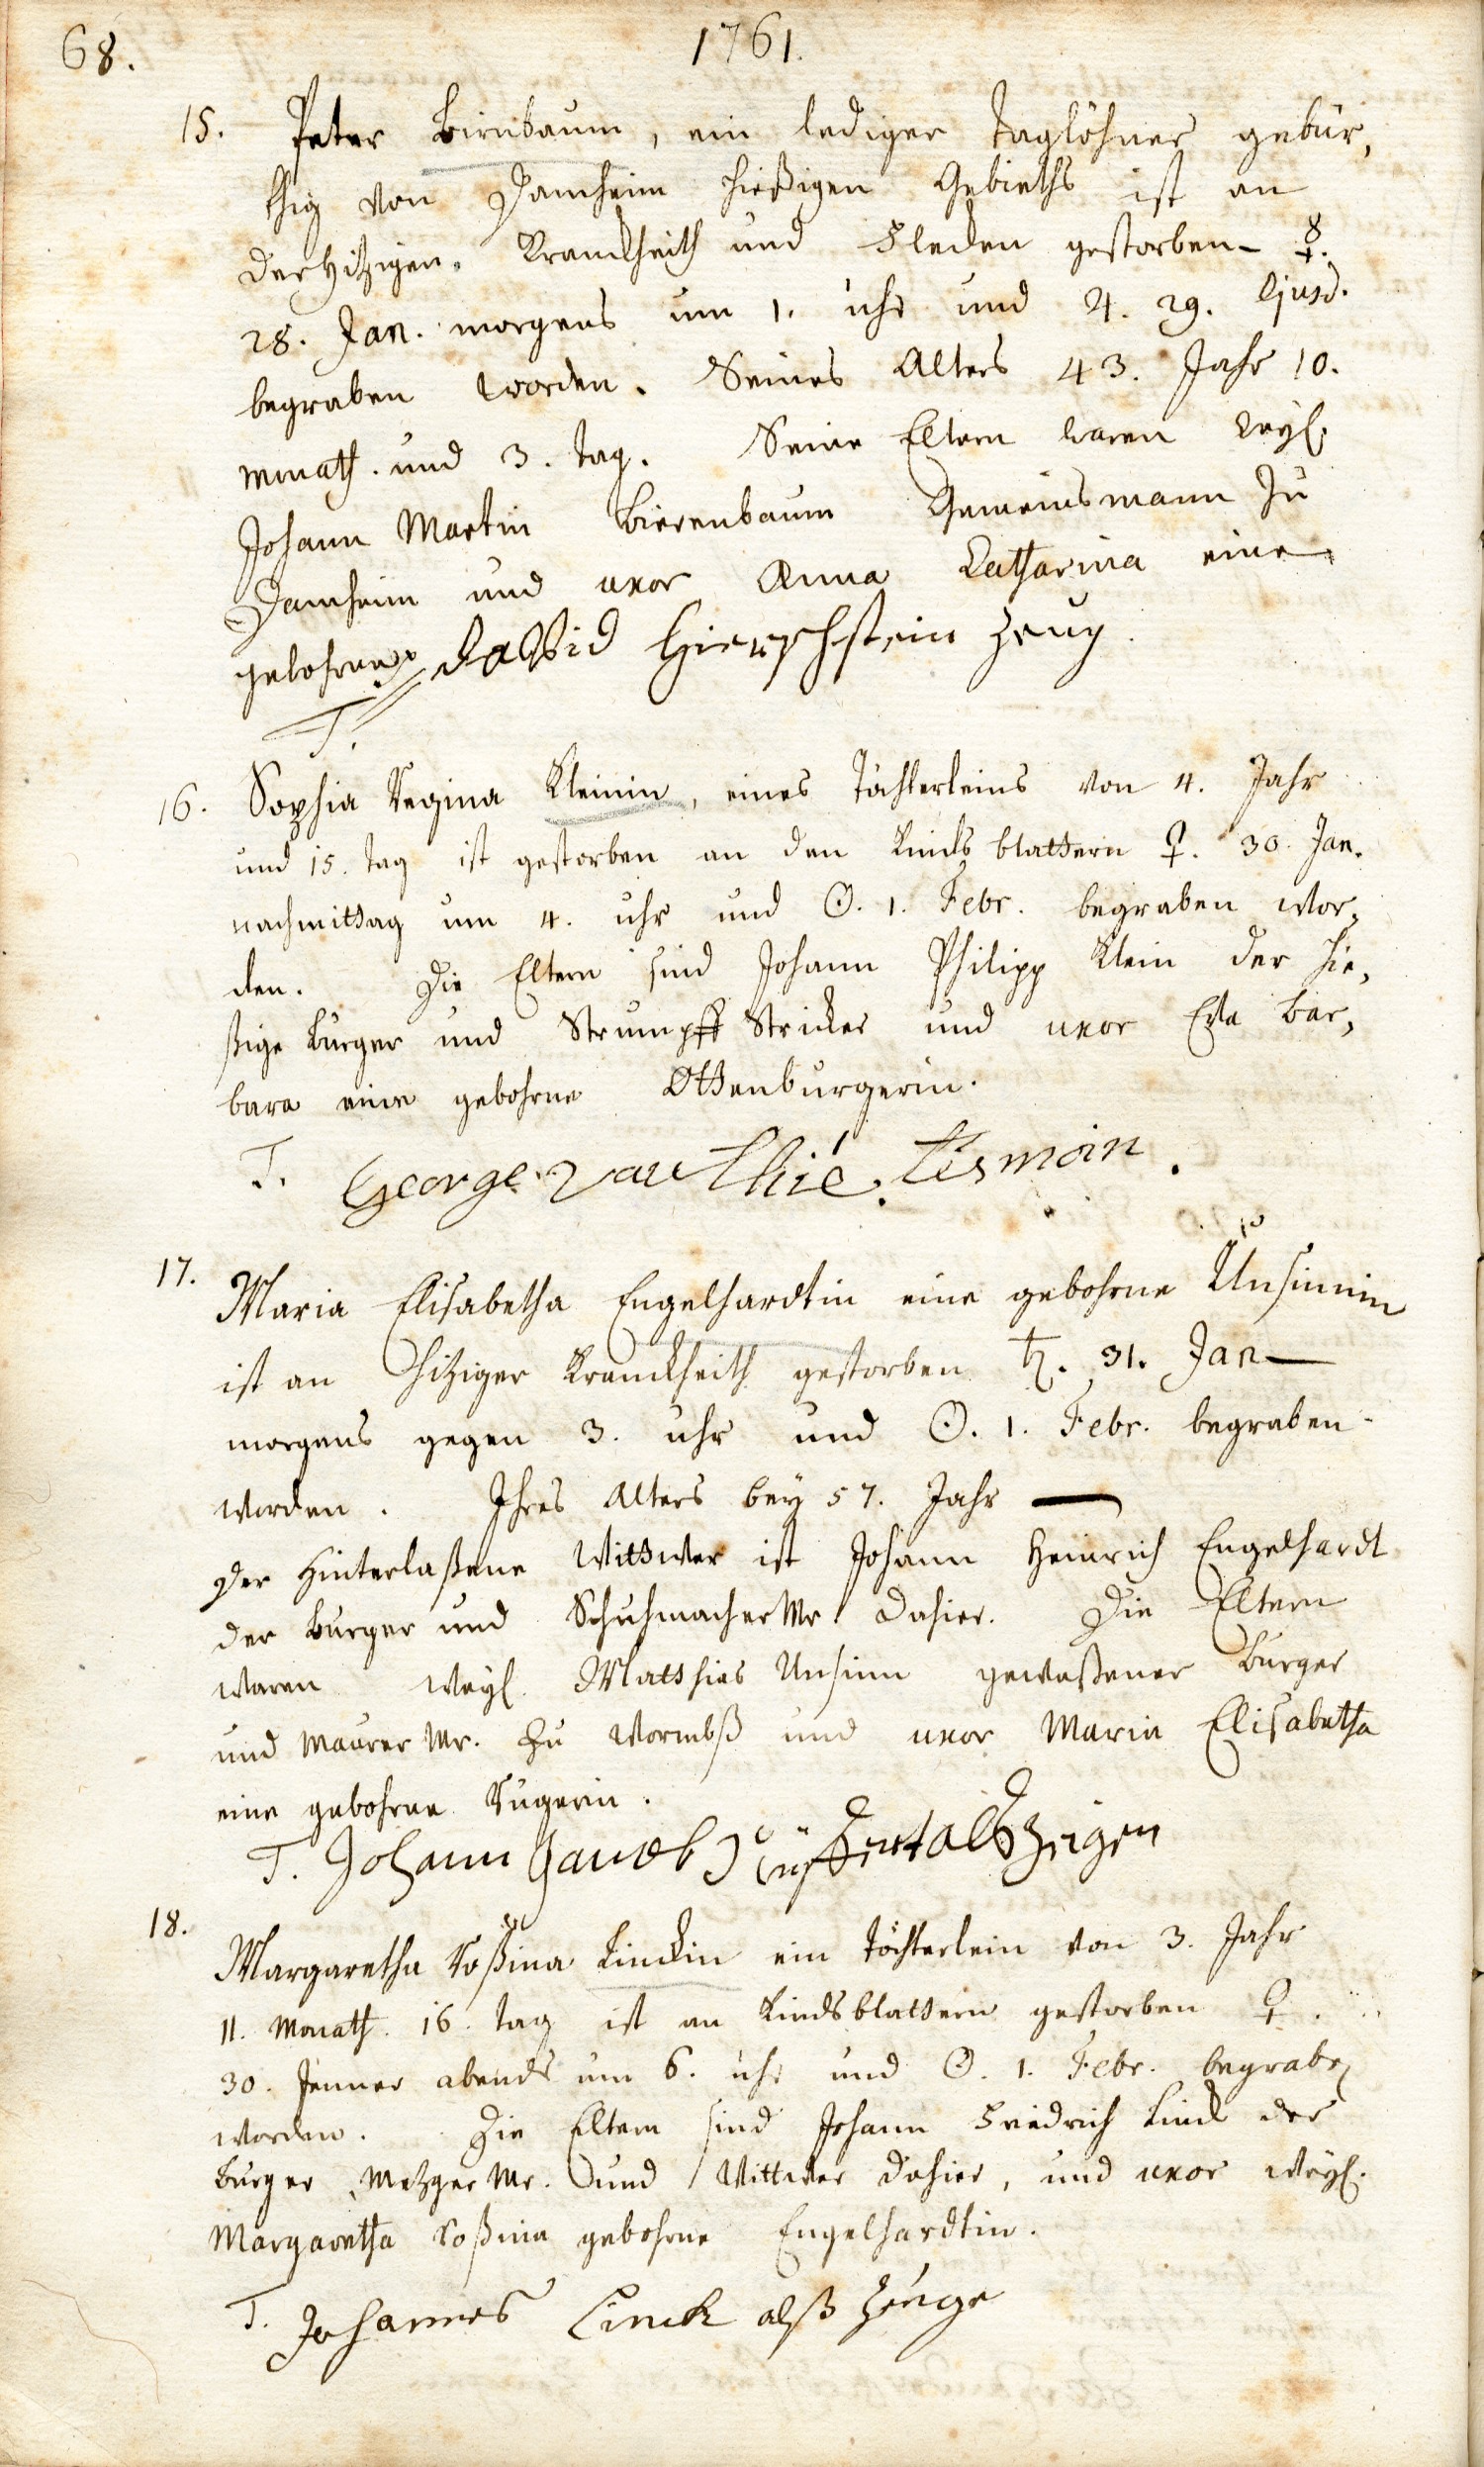 68.
1761.
15. Peter Birnbaum, ein lediger Taglöhner gebür,
thig von Damheim hießigen Gebieths ist an
der hitzigen Kranckheith und Flecken gestorben ☿.
28. Jan. morgens um 1. uhr und ♃. 29. Ejusd.
begraben worden. Seines Alters 43. Jahr 10.
Monath. und 3. Tag. Seine Eltern waren weyl.
Johann Martin Birrenbaum Gemeinsmann zu
Damheim und uxor Anna Catharina eine
gebohrne David Hierschstein Zeug
T.
16. Sophia Regina Kleinin, eines Töchterleins von 4. Jahr
und 15. Tag ist gestorben an den Kindsblattern ♀. 30. Jan.
nachmittag um 4. uhr und ☉. 1. Febr. begraben wor,
den. Die Eltern sind Johann Philipp Klein der hie,
ßige Burger und Strumpff Stricker und uxor Eva Bar,
bara eine gebohrne Ottenburgerin.
T. George Vauthié. tésmoin.
17. Maria Elisabetha Engelhardtin eine gebohrne Unsinnin
ist an hitziger Kranckheith gestorben ♄. 31. Jan
morgens gegen 3. uhr und ☉. 1. Febr. begraben
worden. Ihres Alters bey 57. Jahr
Der hinterlaßene Wittwer ist Johann Heinrich Engelhardt
der Burger und Schuhmacher Mr. dahier. Die Eltern
waren weyl. Matthias Unsinn geweßener Burger
und Maurer Mr. zu Wormbß und uxor Maria Elisabetha
eine gebohrne Rugerin.
T. Johann Jacob alß Zeigen
18. Margaretha Roßina Linckin ein Töchterlein von 3. Jahr
11. Monath. 16. Tag ist an Kindsblattern gestorben ♀.
30. Jenner abends um 6. uhr und ☉. 1. Febr. begraben
worden. Die Eltern sind Johann Friedrich Linck der
Burger, Metzger Mr. und Wittwer dahier, und uxor weyl.
Margaretha Roßina gebohrne Engelhardtin.
T. Johannes Linck alß Zeuge